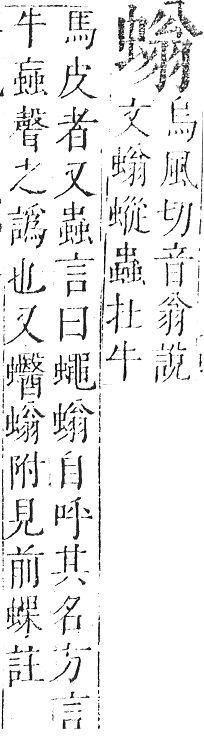 螉
烏風切音翁說
文螉䗥蟲扗牛
馬皮者又蟲言曰蠅螉自呼其名方言
牛蝱聲之譌也又蠮螉附見前蜾註